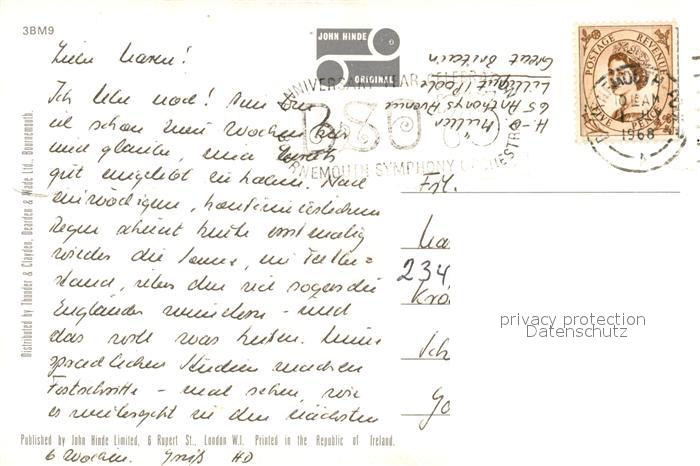 3BM9
JOHN HINDE
ORIGINAL
Liebe Maren!
Ich lebe noch! Nun bin
ich schon zwei Wochen hier
und glaube, mich
gut eingelebt zu haben. Nach
Regen scheint heute erstmalig
wieder die Sonne, ein Tatbe=
stand, über den sich sogar die
Engländer wundern - und
das will was heißen. Meine
sprachlichen Studien machen
Fortschritte - mal sehen, wie
es weitergeht in den nächsten
6 Wochen. Gruß HD
ANNIVERSARY YEAR CELEBRA
BSO 75
BOURNEMOUTH SYMPHONY ORCHESTRA
H-
65 Anthonys Avenue
Lilliput / Poole
Great Britain
POSTAGE REVENUE
FIVE PENCE
10 15 AM
1968
Frl.
Ma
234
Krö
Sch
Go
privacy protection
Datenschutz
Distributed by Thunder & Clayden, Dearden & Wade Ltd., Bournemouth.
Published by John Hinde Limited, 6 Rupert St., London W.1. Printed in the Republic of Ireland.